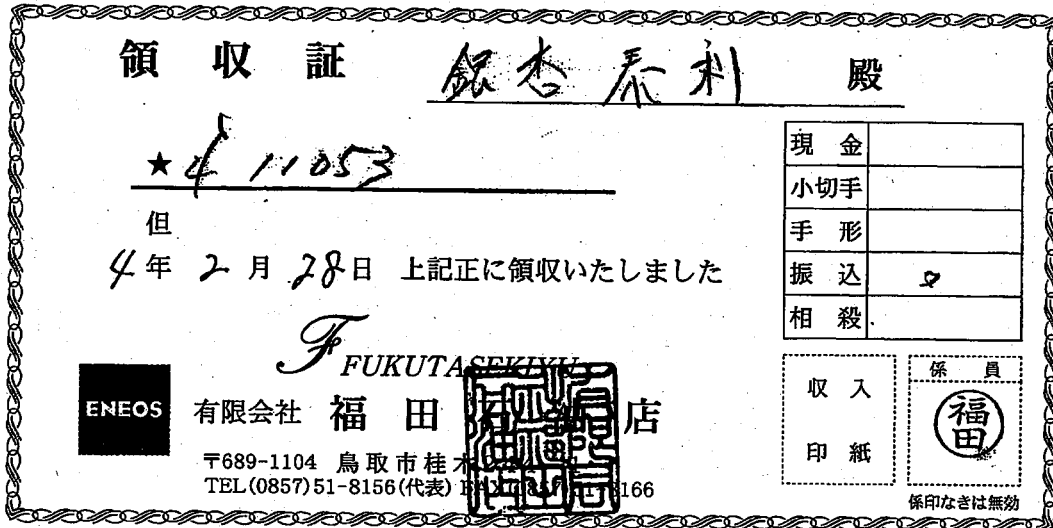 領 収 証
銀杏 泰利 殿
★ ¥ 11053
但
4年 2月 28日 上記正に領収いたしました
現 金
小切手
手 形
振 込
相 殺
F FUKUTASEKIYU
ENEOS
有限会社 福 田 石 油 店
〒689-1104 鳥取市桂木
TEL(0857)51-8156(代表) FAX
収 入
印 紙
係 員
福田
係印なきは無効